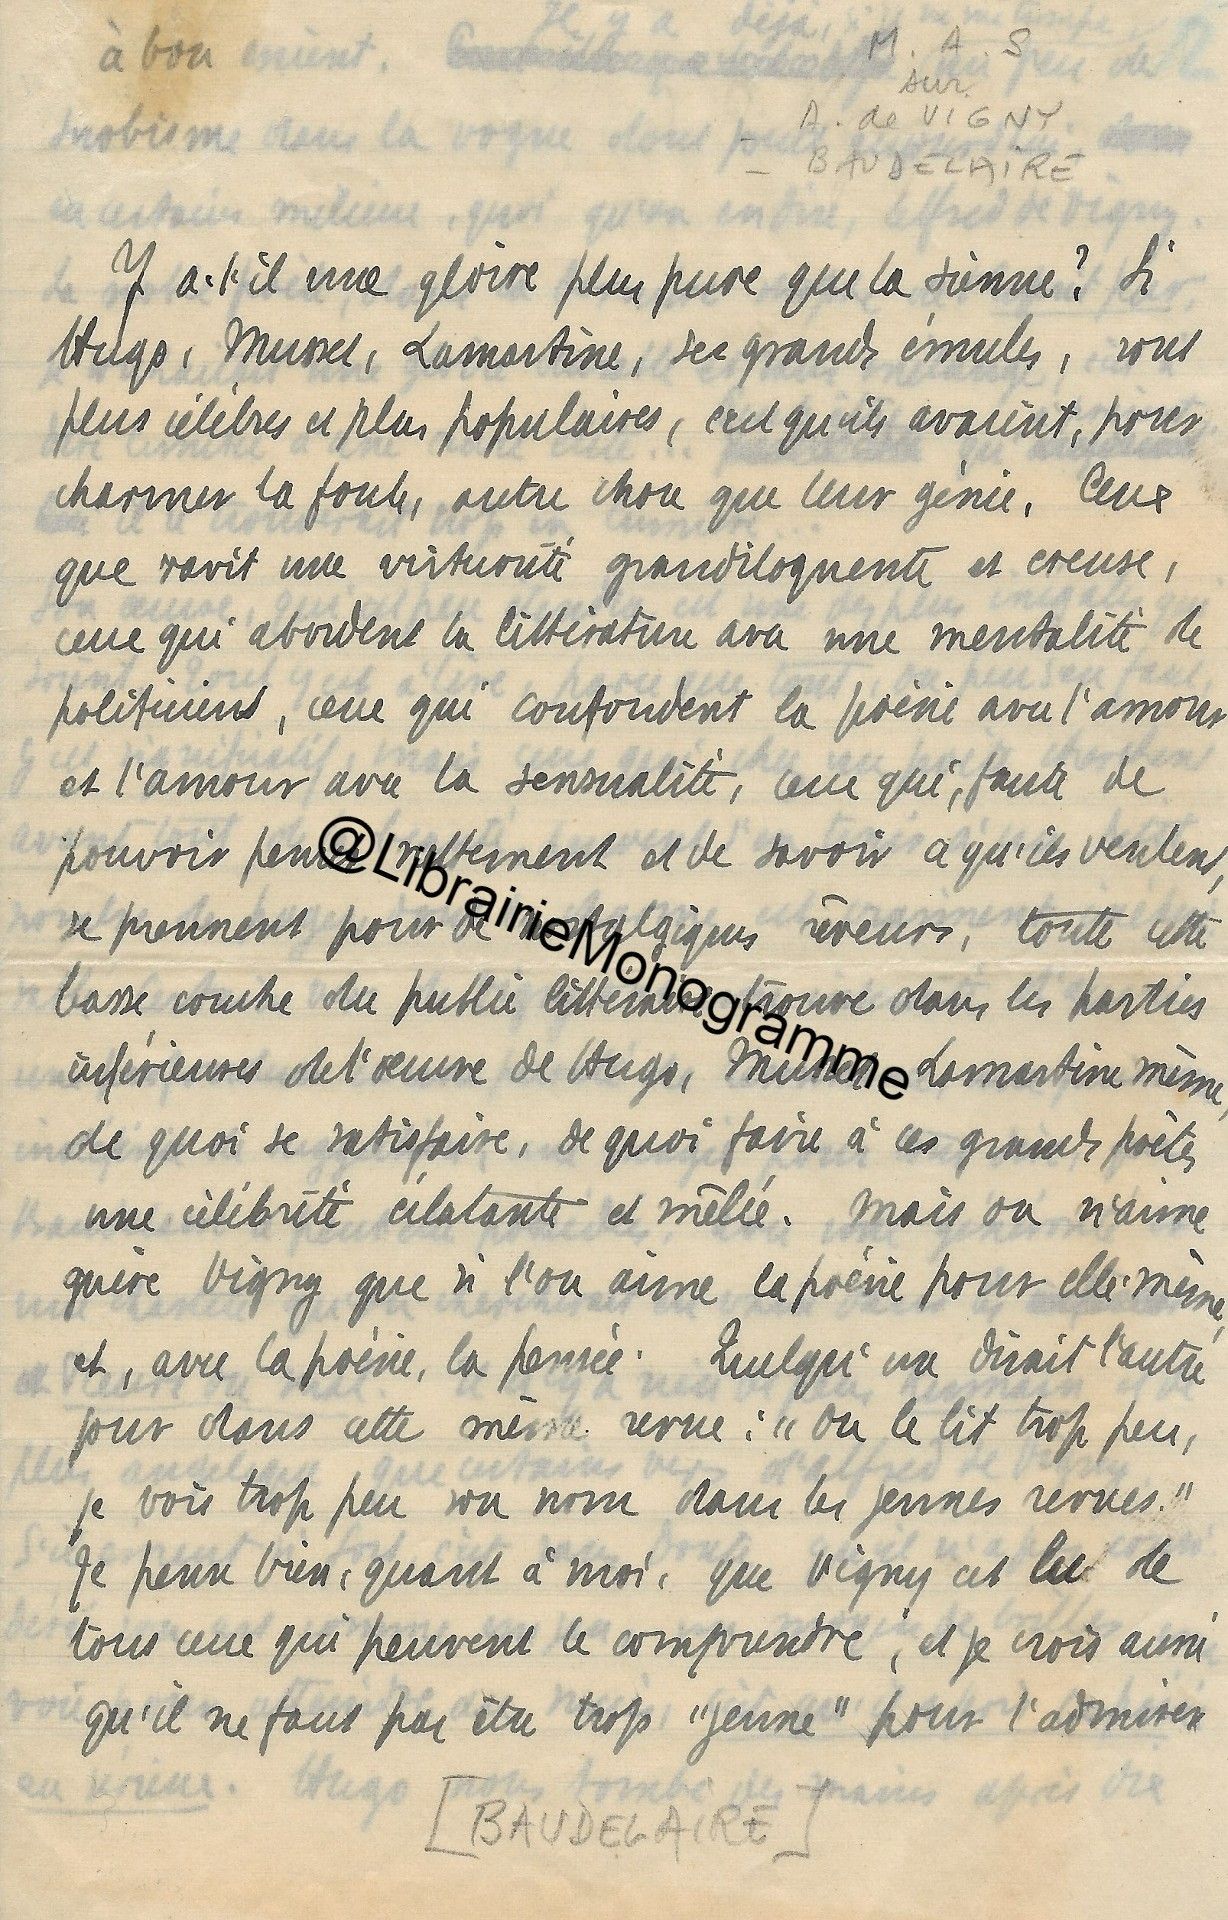 M. A. S
sur
A. de VIGNY
- BAUDELAIRE
Y a-t'il une gloire plus pure que la sienne? Si
Hugo, Musset, Lamartine, ses grands émules, sont
plus célèbres et plus populaires, c'est qu'ils avaient, pour
charmer la foule, autre chose que leur génie. Ceux
que ravit une virtuosité grandiloquente et creuse,
ceux qui abordent la littérature avec une mentalité de
politiciens, ceux qui confondent la poésie avec l'amour
et l'amour avec la sensualité, ceux qui, faute de
pouvoir penser nettement et de savoir ce qu'ils veulent,
se prennent pour de nostalgiques rêveurs, toute cette
basse couche du public littéraire trouve dans les parties
inférieures de l'œuvre de Hugo, Musset, Lamartine même,
de quoi se satisfaire, de quoi faire à ces grands poètes
une célébrité éclatante et mêlée. Mais on n'aime
guère Vigny que si l'on aime la poésie pour elle-même,
et, avec la poésie, la pensée. Quelqu'un disait l'autre
jour dans cette même revue : "On le lit trop peu,
je vois trop peu son nom dans les jeunes revues."
Je pense bien, quant à moi, que Vigny est lu de
tous ceux qui peuvent le comprendre, et je crois aussi
qu'il ne faut pas être trop "jeune" pour l'admirer
[BAUDELAIRE]
@LibrairieMonogramme